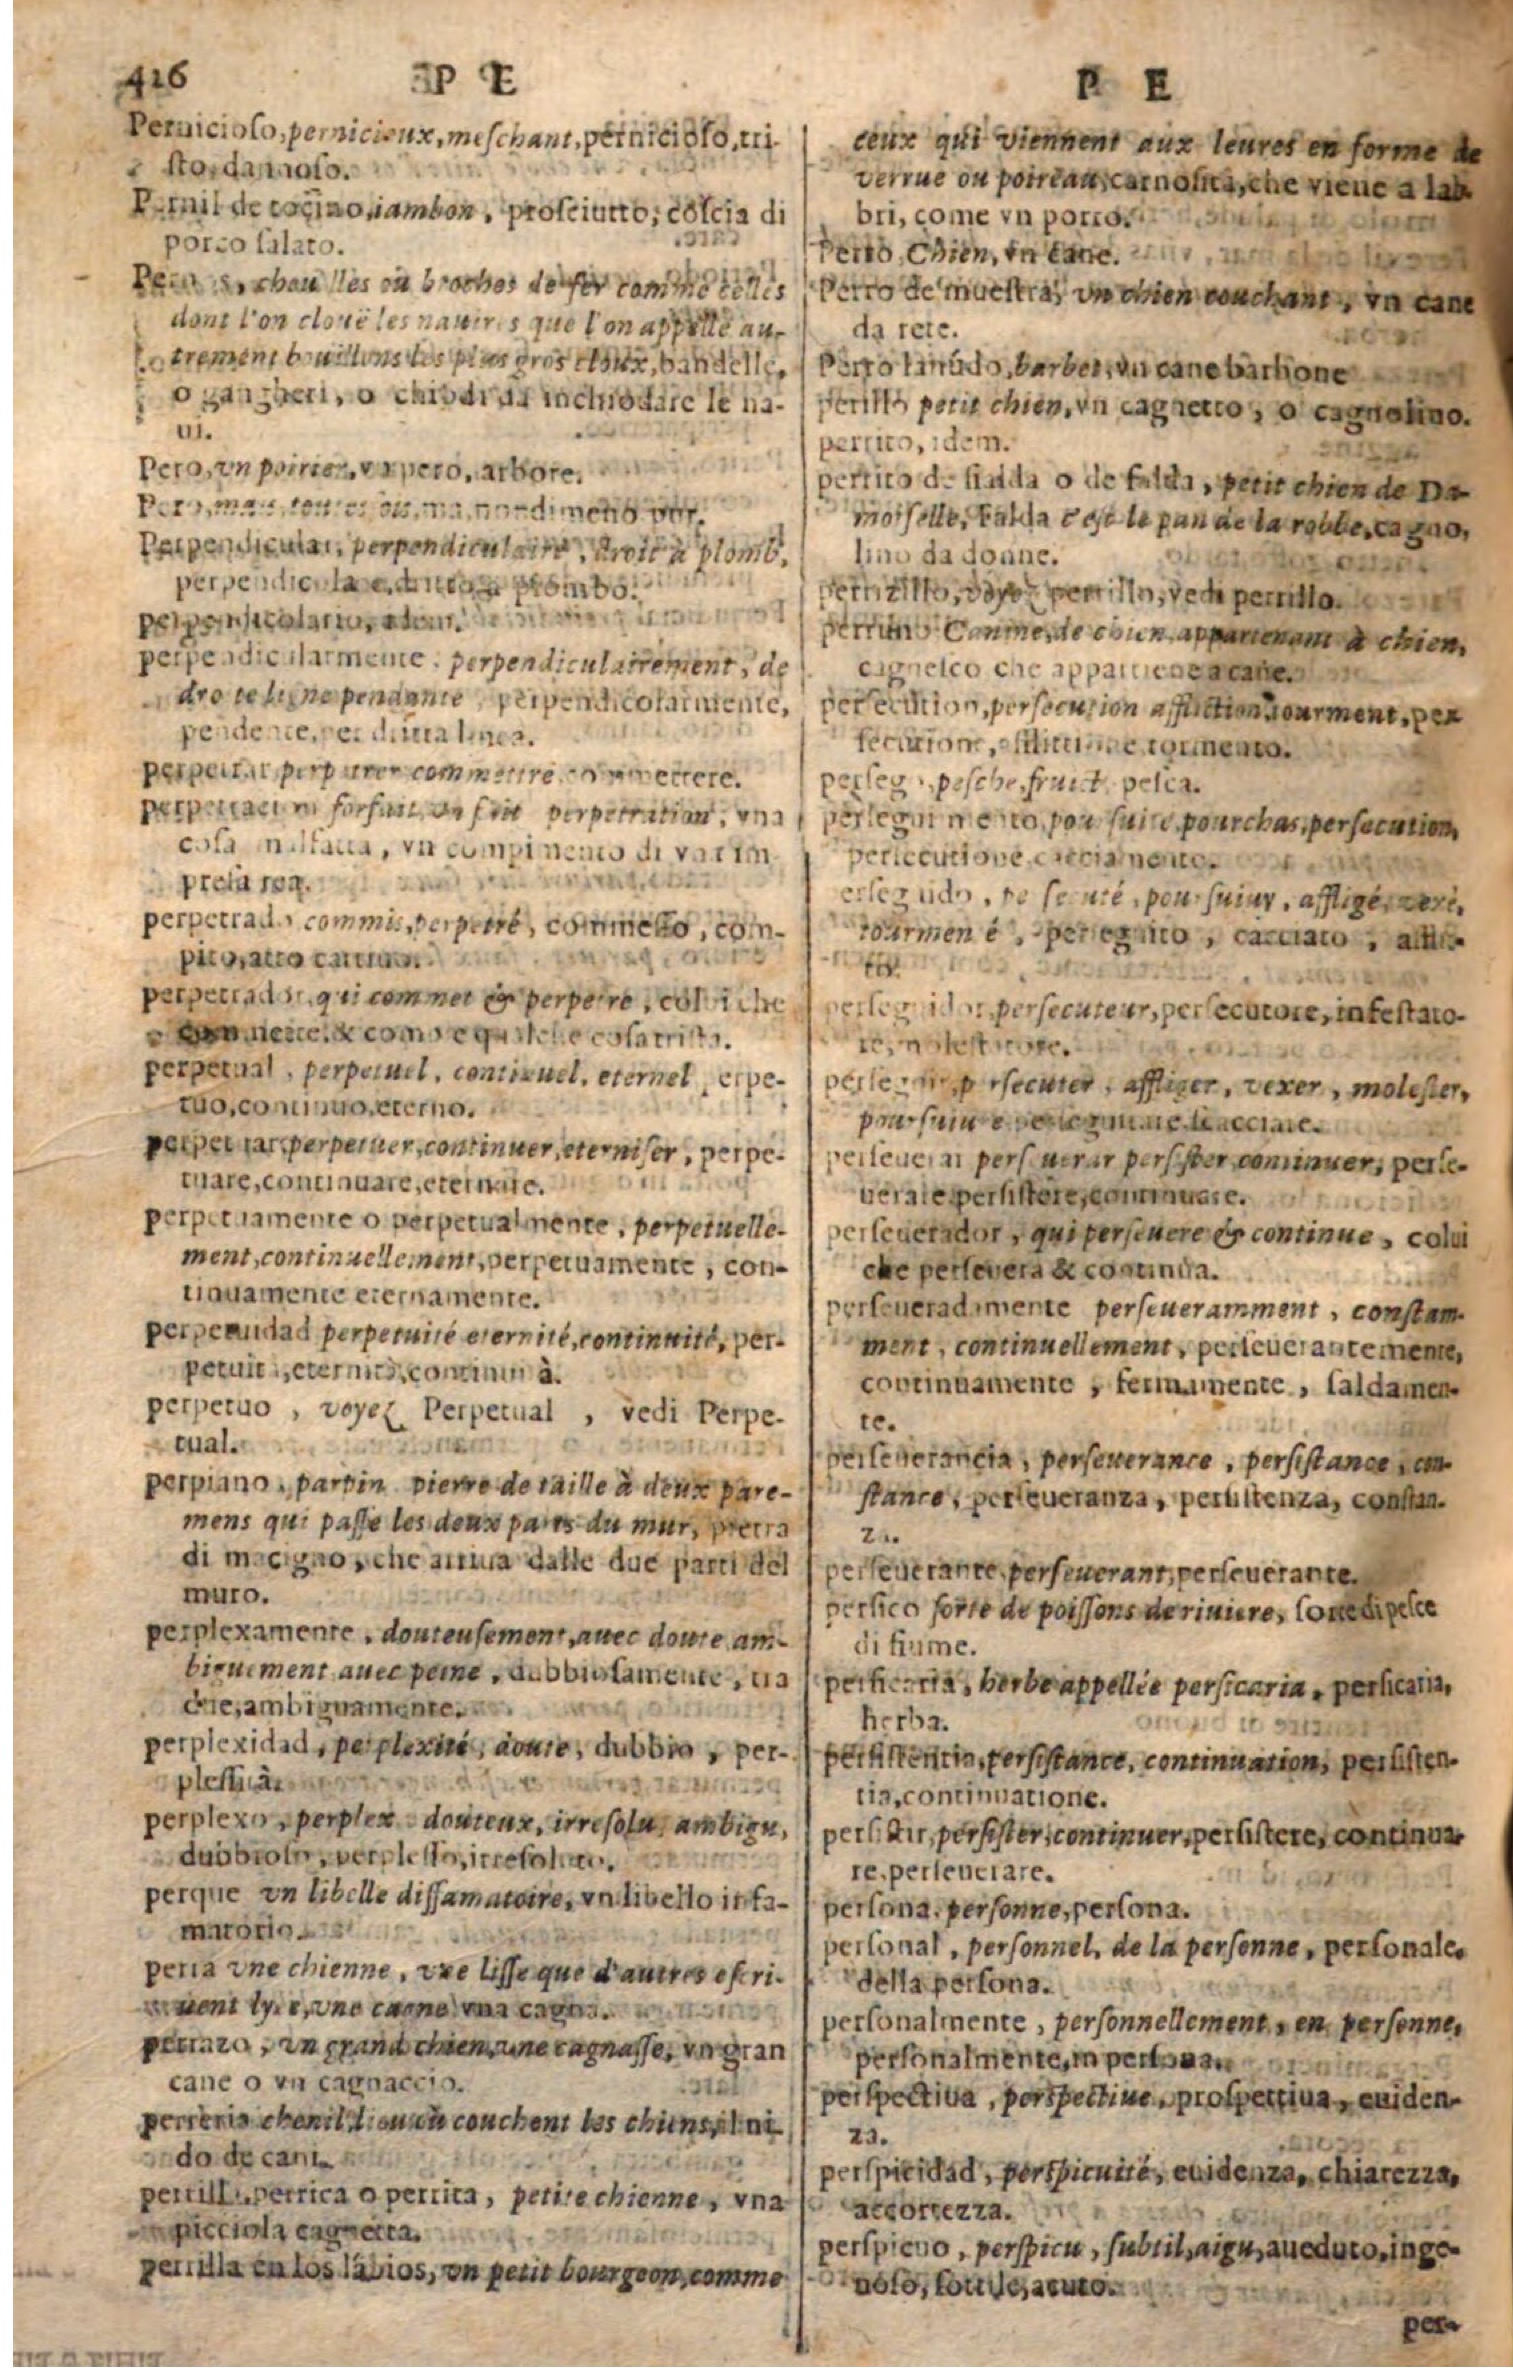 426
P E
Pernicioso, pernicieux, meschant, pernicioso, tri-
sto, dannoso.
Pernil de tocino, iambon, prosciutto, coscia di
porco salato.
cheuilles ou broches de fer comme celles
dont l'on clouë les nauires que l'on appelle au-
trement bouillons les plus gros cloux, bandelle,
o gangheri, o chiodi da inchiodare le na-
ui.
Pero, vn poirier, vn pero, arbore.
Pero, mais,
Perpendicular, perpendiculaire, droit à plomb,
perpendicolare, dritto a piombo.
perpendicolario, idem.
perpendicularmente, perpendiculairement, de
droite ligne pendante, perpendicolarmente,
pendente, per dritta linea.
perpetrar perpetrer commettre, commettere.
perpetracion forfait, vn fait perpetration, vna
cosa malfatta, vn compimento di
presa rea.
perpetrado commis, perpetré, commesso, com-
pito, atto cattiuo.
perpetrador, qui commet & perpetre, colui che
commette, & compie qualche cosa trista.
perpetual, perpetuel, continuel, eternel, erpe-
tuo, continuo, eterno.
perpetuar, perpetuer, continuer, eterniser, perpe-
tuare, continuare, eternare.
perpetuamente o perpetualmente, perpetuelle-
ment, continuellement, perpetuamente, con-
tinuamente eternamente.
perpetuidad perpetuité eternité, continuité, per-
petuità, eternità, continuità.
perpetuo, voyez Perpetual, vedi Perpe-
tual.
perpiano, parpin pierre de taille à deux pare-
mens qui passe les deux parts du mur, pietra
di macigno, che arriua dalle due parti del
muro.
perplexamente, douteusement, auec doute am-
biguement auec peine, dubbiosamente, tra
due, ambiguamente.
perplexidad, perplexité, doute, dubbio, per-
plessità.
perplexo, perplex douteux, irresolu, ambigu,
dubbioso, perplesso, irresoluto.
perque vn libelle diffamatoire, vn libello infa-
matorio.
perra vne chienne, vne lisse que d'autres escri-
uent lyce, vne cagne vna cagna.
perrazo, vn grand chien, vne cagnasse, vn gran
cane o vn cagnaccio.
perreria chenil, lieu où couchent les chiens, il ni-
do de cani.
perrilla, perrica o perrita, petite chienne, vna
picciola cagnetta.
perrilla en los lábios, vn petit bourgeon, comme
P E
ceux qui viennent aux leures en forme de
verrue ou poireau, carnosità, che viene a lab-
bri, come vn porro.
Perro, Chien, vn cane.
Perro de muestra, vn chien couchant, vn cane
da rete.
Perro lanúdo, barbet, vn cane barbone
perillo petit chien, vn cagnetto, o cagnolino.
perrito, idem.
perrito de halda o de falda, petit chien de Da-
moiselle, Falda c'est le pan de la robbe, cagno,
lino da donne.
perrizillo, voyez perrillo, vedi perrillo.
perruno Canine, de chien, appartenant à chien,
cagnesco che appartiene a cane.
persecution, persecution affliction, tourment, per
secutione, afflittione tormento.
persego, pesche, fruict, pesca.
perseguimiento, poursuite, pourchas, persecution,
persecutione cacciamento.
erseguido, persecuté, poursuiuy, affligé, vexé,
tourmenté, perseguito, cacciato, afflit-
to.
perseguidor, persecuteur, persecutore, infestato-
re, molestatore.
perseguir, persecuter, affliger, vexer, molester,
poursuiure perseguitare scacciare.
perseuerar perseuerar persister, continuer, perse-
uerare persistere, continuare.
perseuerador, qui perseuere & continue, colui
che persevera & continua.
perseueradamente perseueramment, constam-
ment, continuellement, perseuerantemente,
continuamente, fermamente, saldamen-
te.
perseuerancia, perseuerance, persistance, con-
stance, perseueranza, persistenza, constan-
za.
perseuerante, perseuerant, perseuerante.
persico sorte de poissons de riuiere, sorte di pesce
di fiume.
persicaria, herbe appellée persicaria, persicaria,
herba.
persistentia, persistance, continuation, persisten-
tia, continuatione.
persistir, persister, continuer, persistere, continua-
re, perseuerare.
persona, personne, persona.
personal, personnel, de la personne, personale,
della persona.
personalmente, personnellement, en personne,
personalmente, in persona.
perspectiua, perspectiue, prospettiua, euiden-
za.
perspicidad, perspicuité, euidenza, chiarezza,
accortezza.
perspicuo, perspicu, subtil, aigu, aueduto, inge-
noso, sottile, acuto.
per-